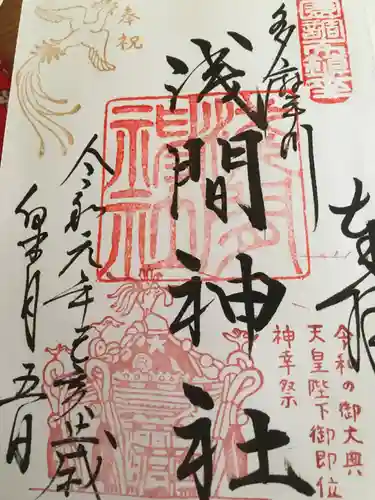 奉拝
令和の御大典
天皇陛下御即位
神幸祭
多摩川
浅間神社
浅間神社
奉祝
令和元年己亥歳
皐月五日